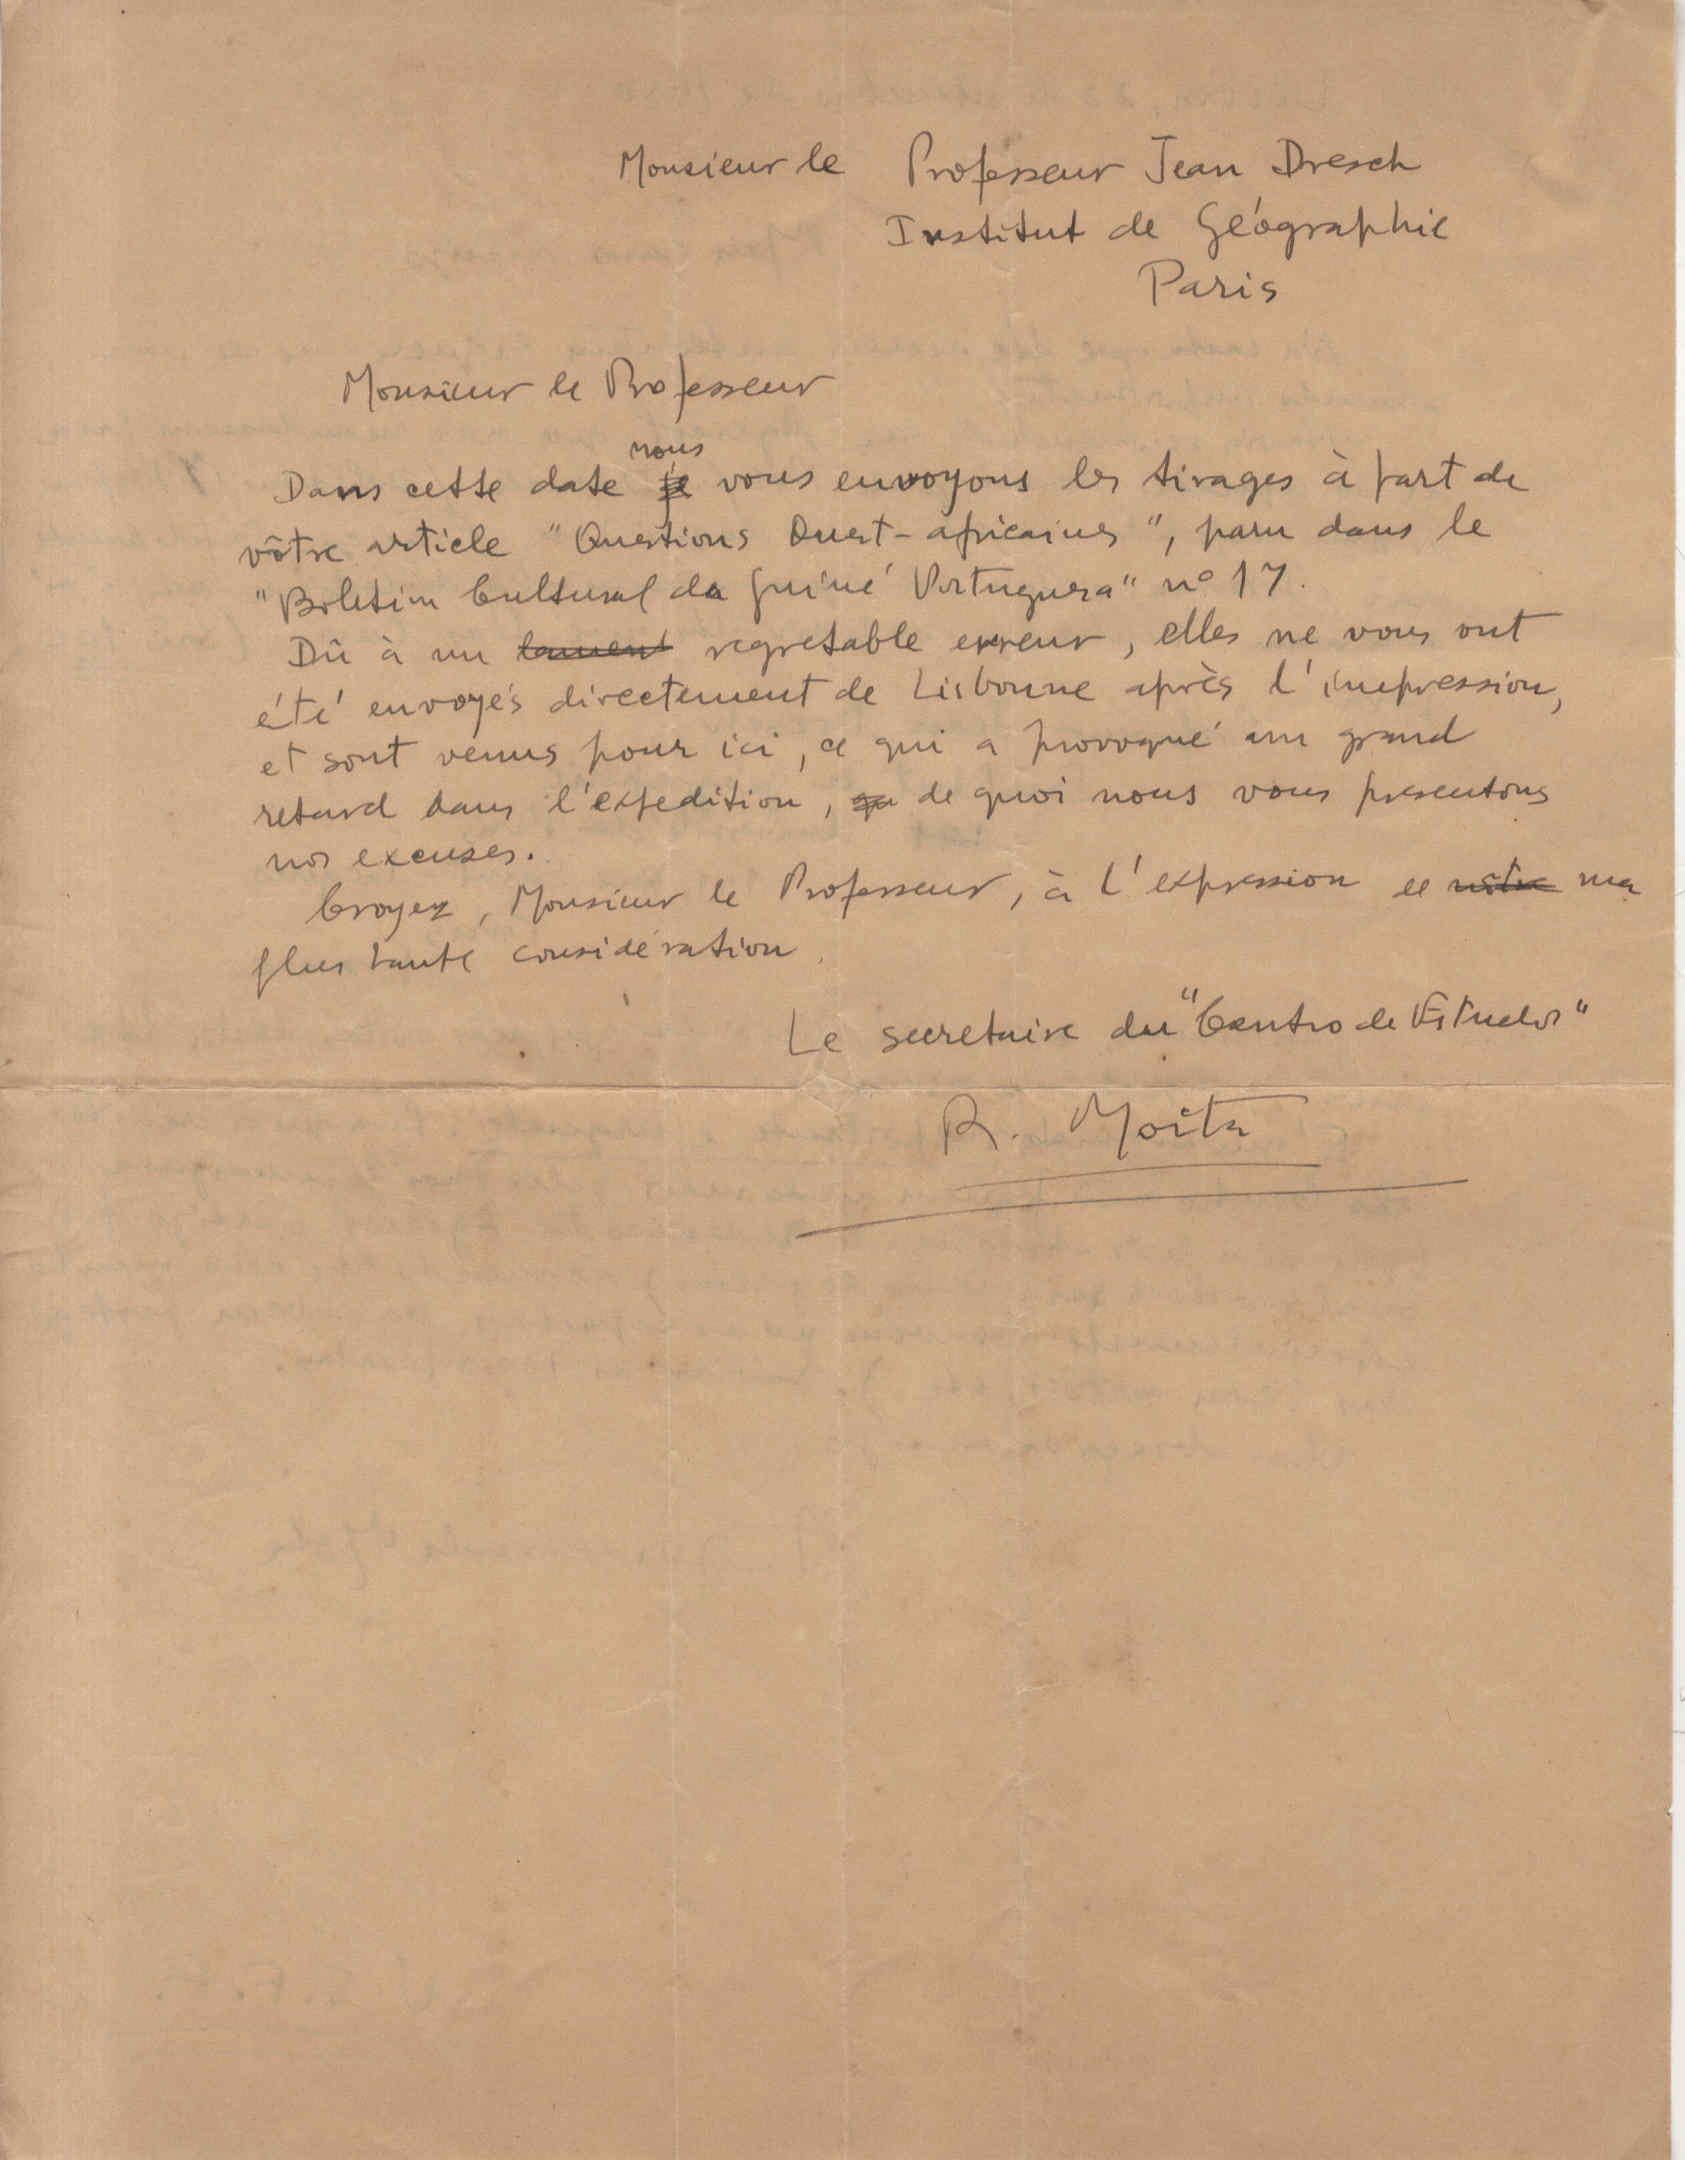 Monsieur le Professeur Jean Dresch
Institut de Géographie
Paris
Monsieur le Professeur
nous
Dans cette date je vous envoyons les tirages à part de
vôtre article "Questions Ouest-africaines", paru dans le
"Boletim Cultural da Guiné Portuguesa" nº 17.
Dû à un lament regretable erreur, elles ne vous ont
été envoyés directement de Lisbonne après l'impression,
et sont venus pour ici, ce qui a provoqué un grand
retard dans l'expedition, qu de quoi nous vous presentons
nos excuses.
Croyez, Monsieur le Professeur, à l'expression de nôtre ma
plus haute considération.
Le secretaire du "Centro de Estudos"
R. Moita